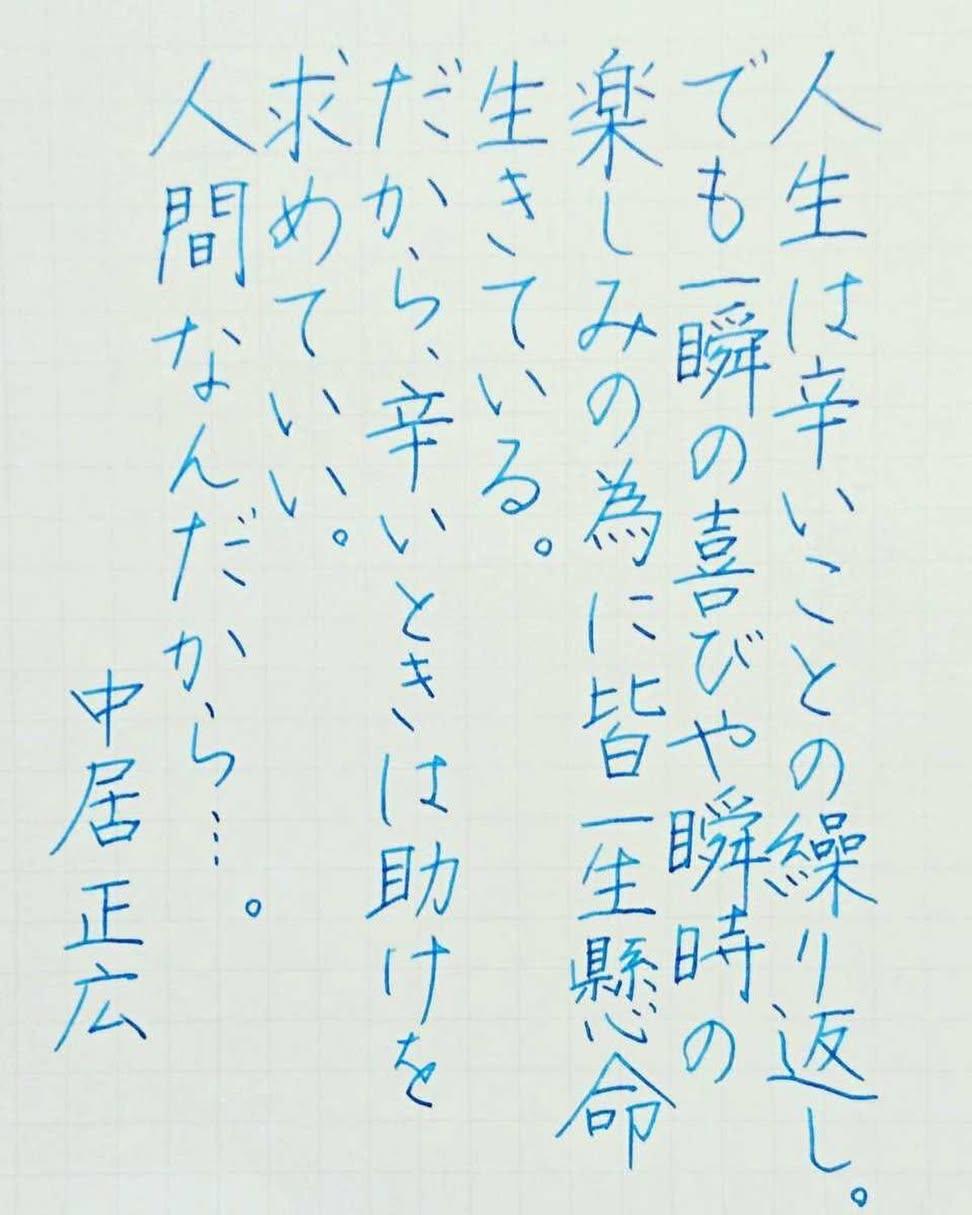 人生は辛いことの繰り返し。
でも一瞬の喜びや瞬時の
楽しみの為に皆一生懸命
生きている。
だから、辛いときは助けを
求めていい。
人間なんだから…。
中居正広